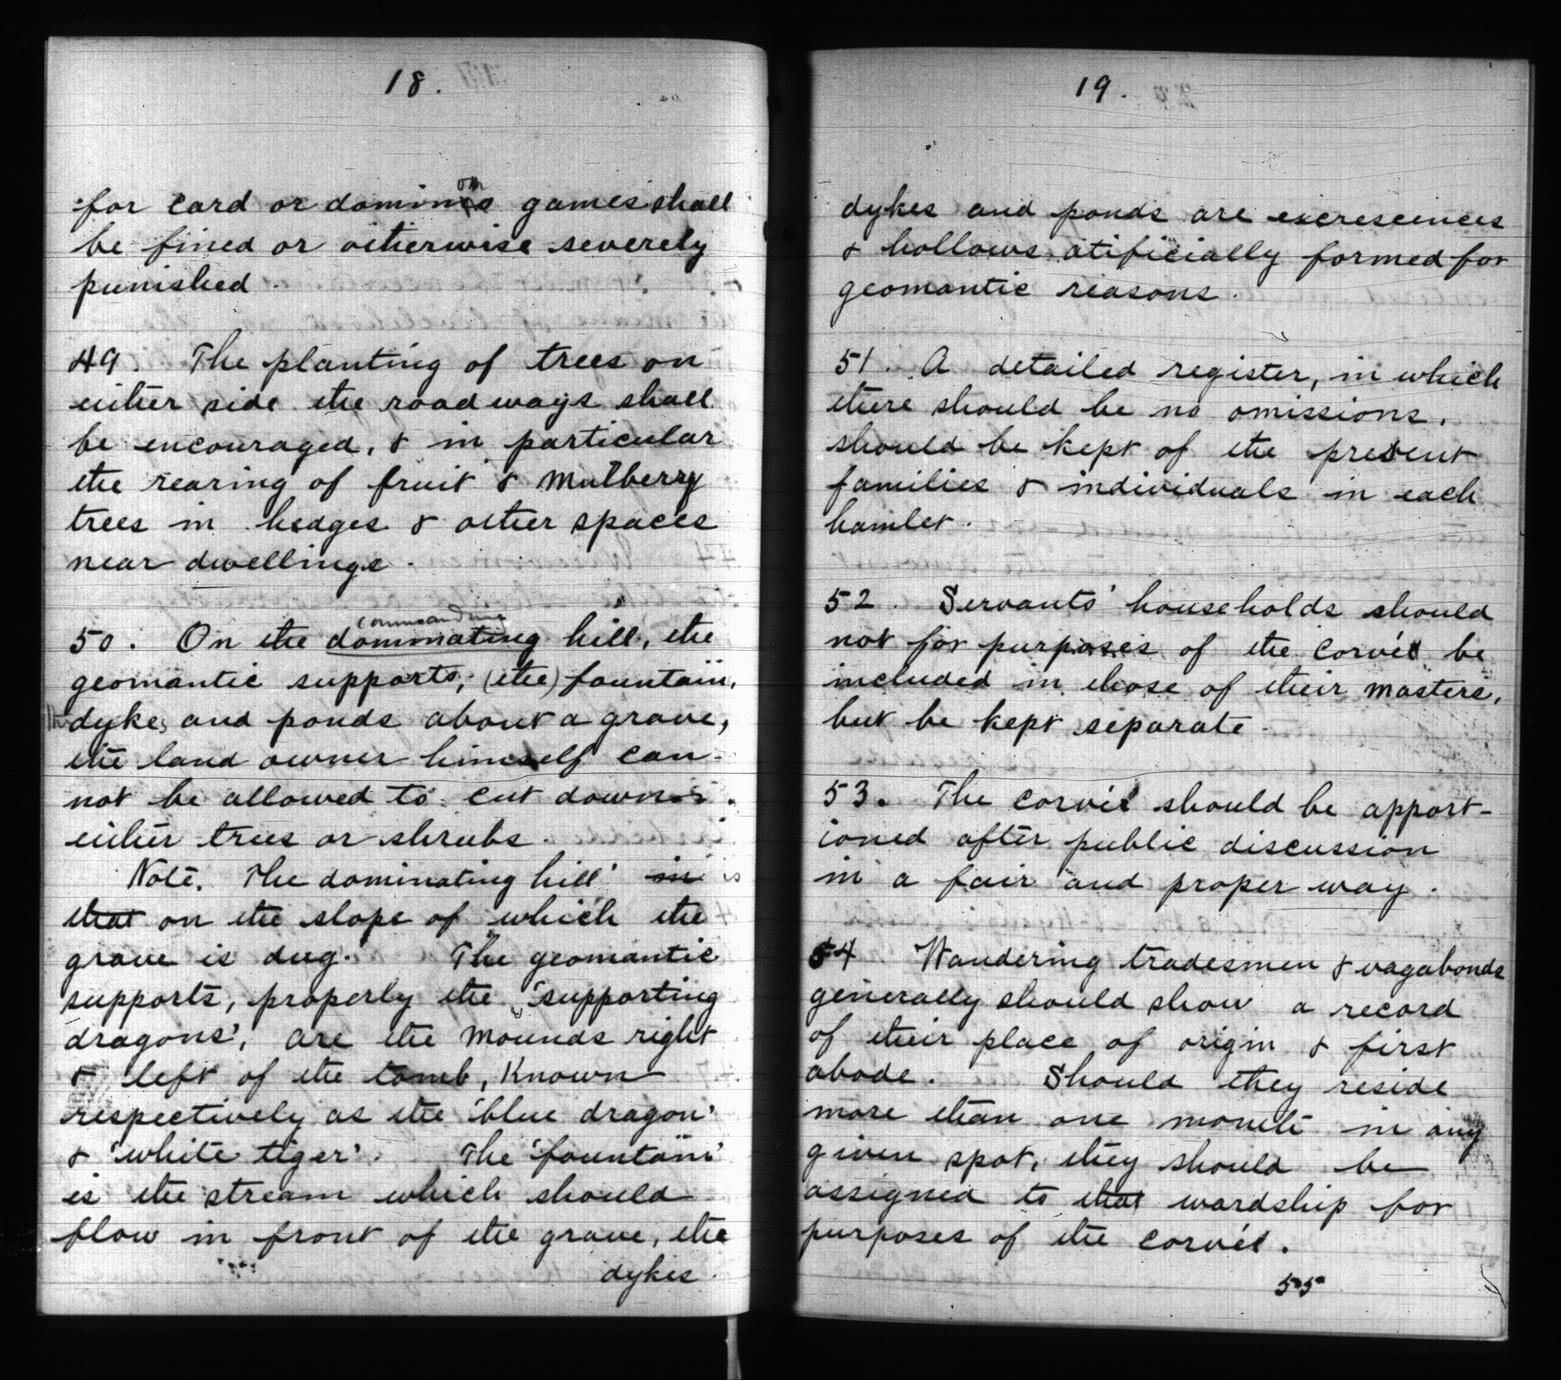 18.
for card or domino games shall
be fined or otherwise severely
punished.
49. The planting of trees on
either side the roadways shall
be encouraged, & in particular
the rearing of fruit & mulberry
trees in hedges & other spaces
near dwellings.
commanding
50. On the dominating hill, the
geomantic supports, (the) fountain,
dykes and ponds about a grave,
the land owner himself can-
not be allowed to cut down
either trees or shrubs.
Note. The dominating hill' in is
that on the slope of which the
grave is dug. The geomantic
supports, properly the 'supporting
dragons', are the mounds right
& left of the tomb, known
respectively as the 'blue dragon'
& 'white tiger'. The 'fountain'
is the stream which should
flow in front of the grave, the
dykes.
19.
dykes and ponds are excrescences
& hollows atificially formed for
geomantic reasons.
51. A detailed register, in which
there should be no omissions,
should be kept of the present
families & individuals in each
hamlet.
52. Servants' households should
not for purposes of the corvée be
included in those of their masters,
but be kept separate.
53. The corvée should be apport-
ioned after public discussion
in a fair and proper way.
54 Wandering tradesmen & vagabonds
generally should show a record
of their place of origin & first
abode. Should they reside
more than one month in any
given spot, they should be
assigned to that wardship for
purposes of the corvée.
55